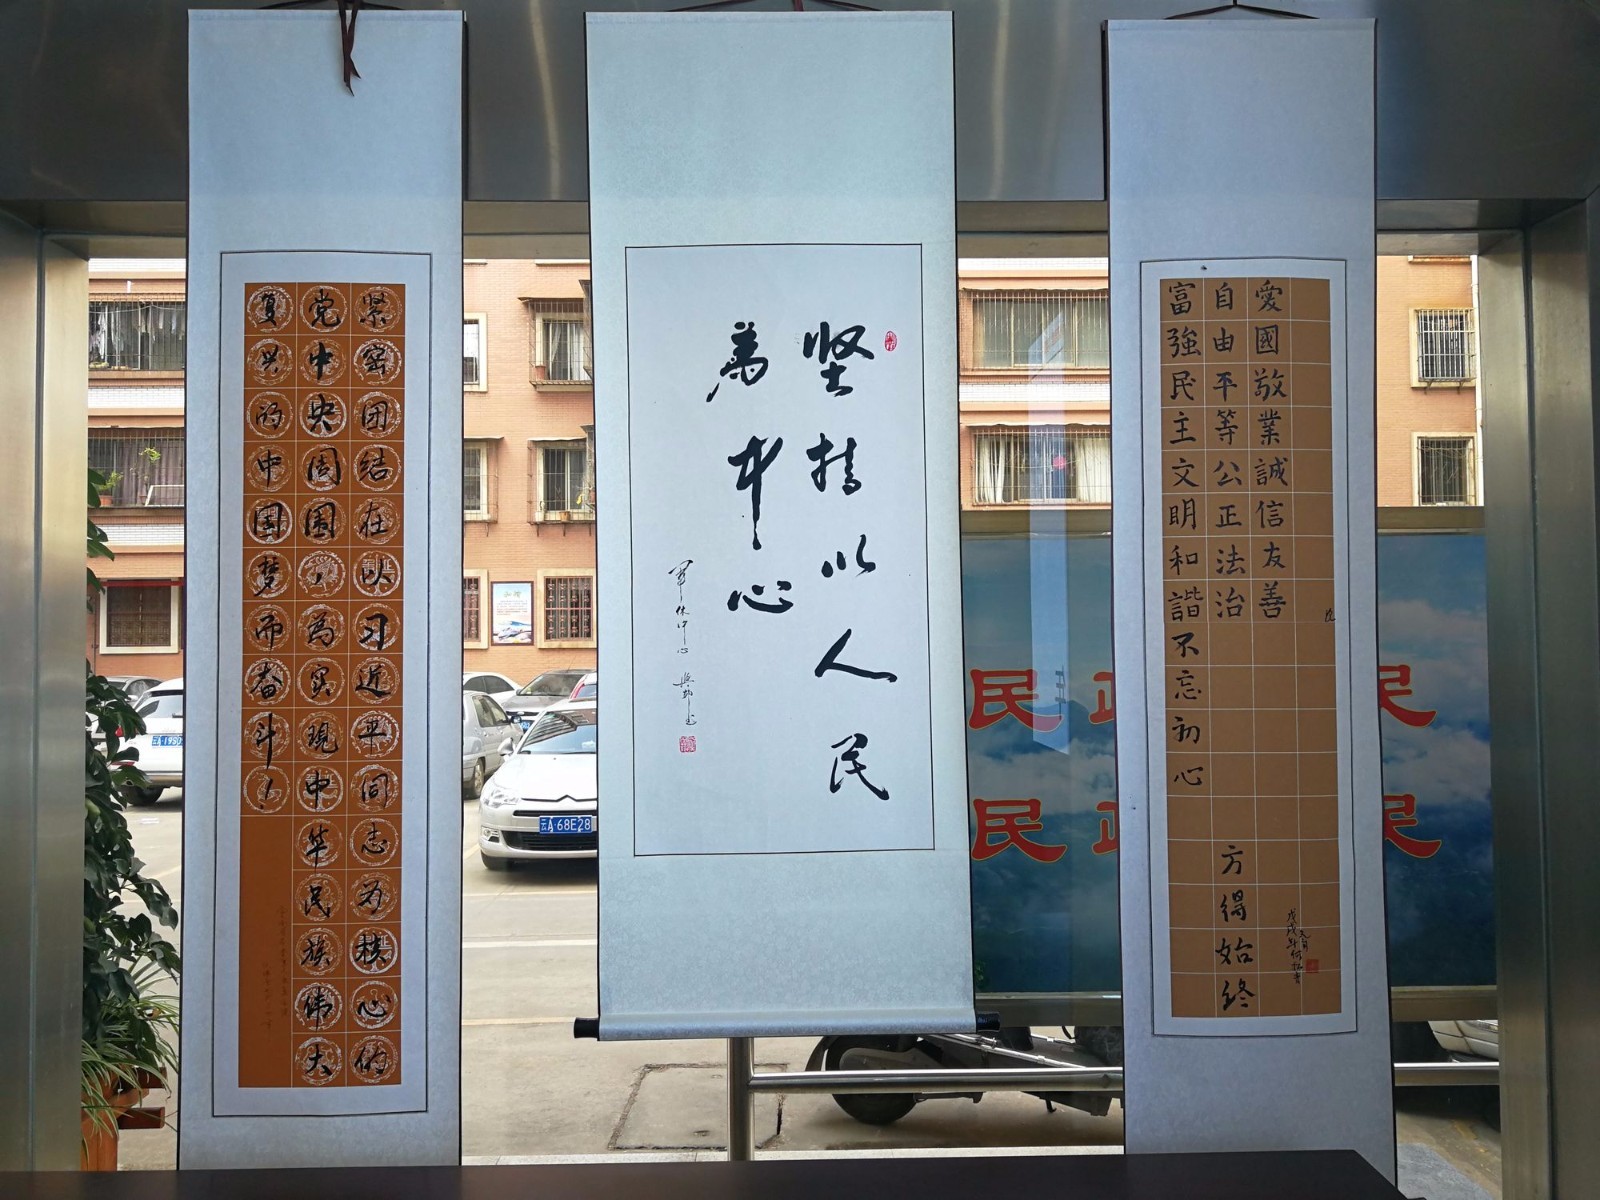 紧密团结在以习近平同志为核心的
党中央周围，为实现中华民族伟大
复兴的中国梦而奋斗！
坚持以人民
为中心
军休中心
爱國敬業誠信友善
自由平等公正法治
富強民主文明和諧不忘初心
方得始终
戊戌年
云A·68E28
民
民
民
民